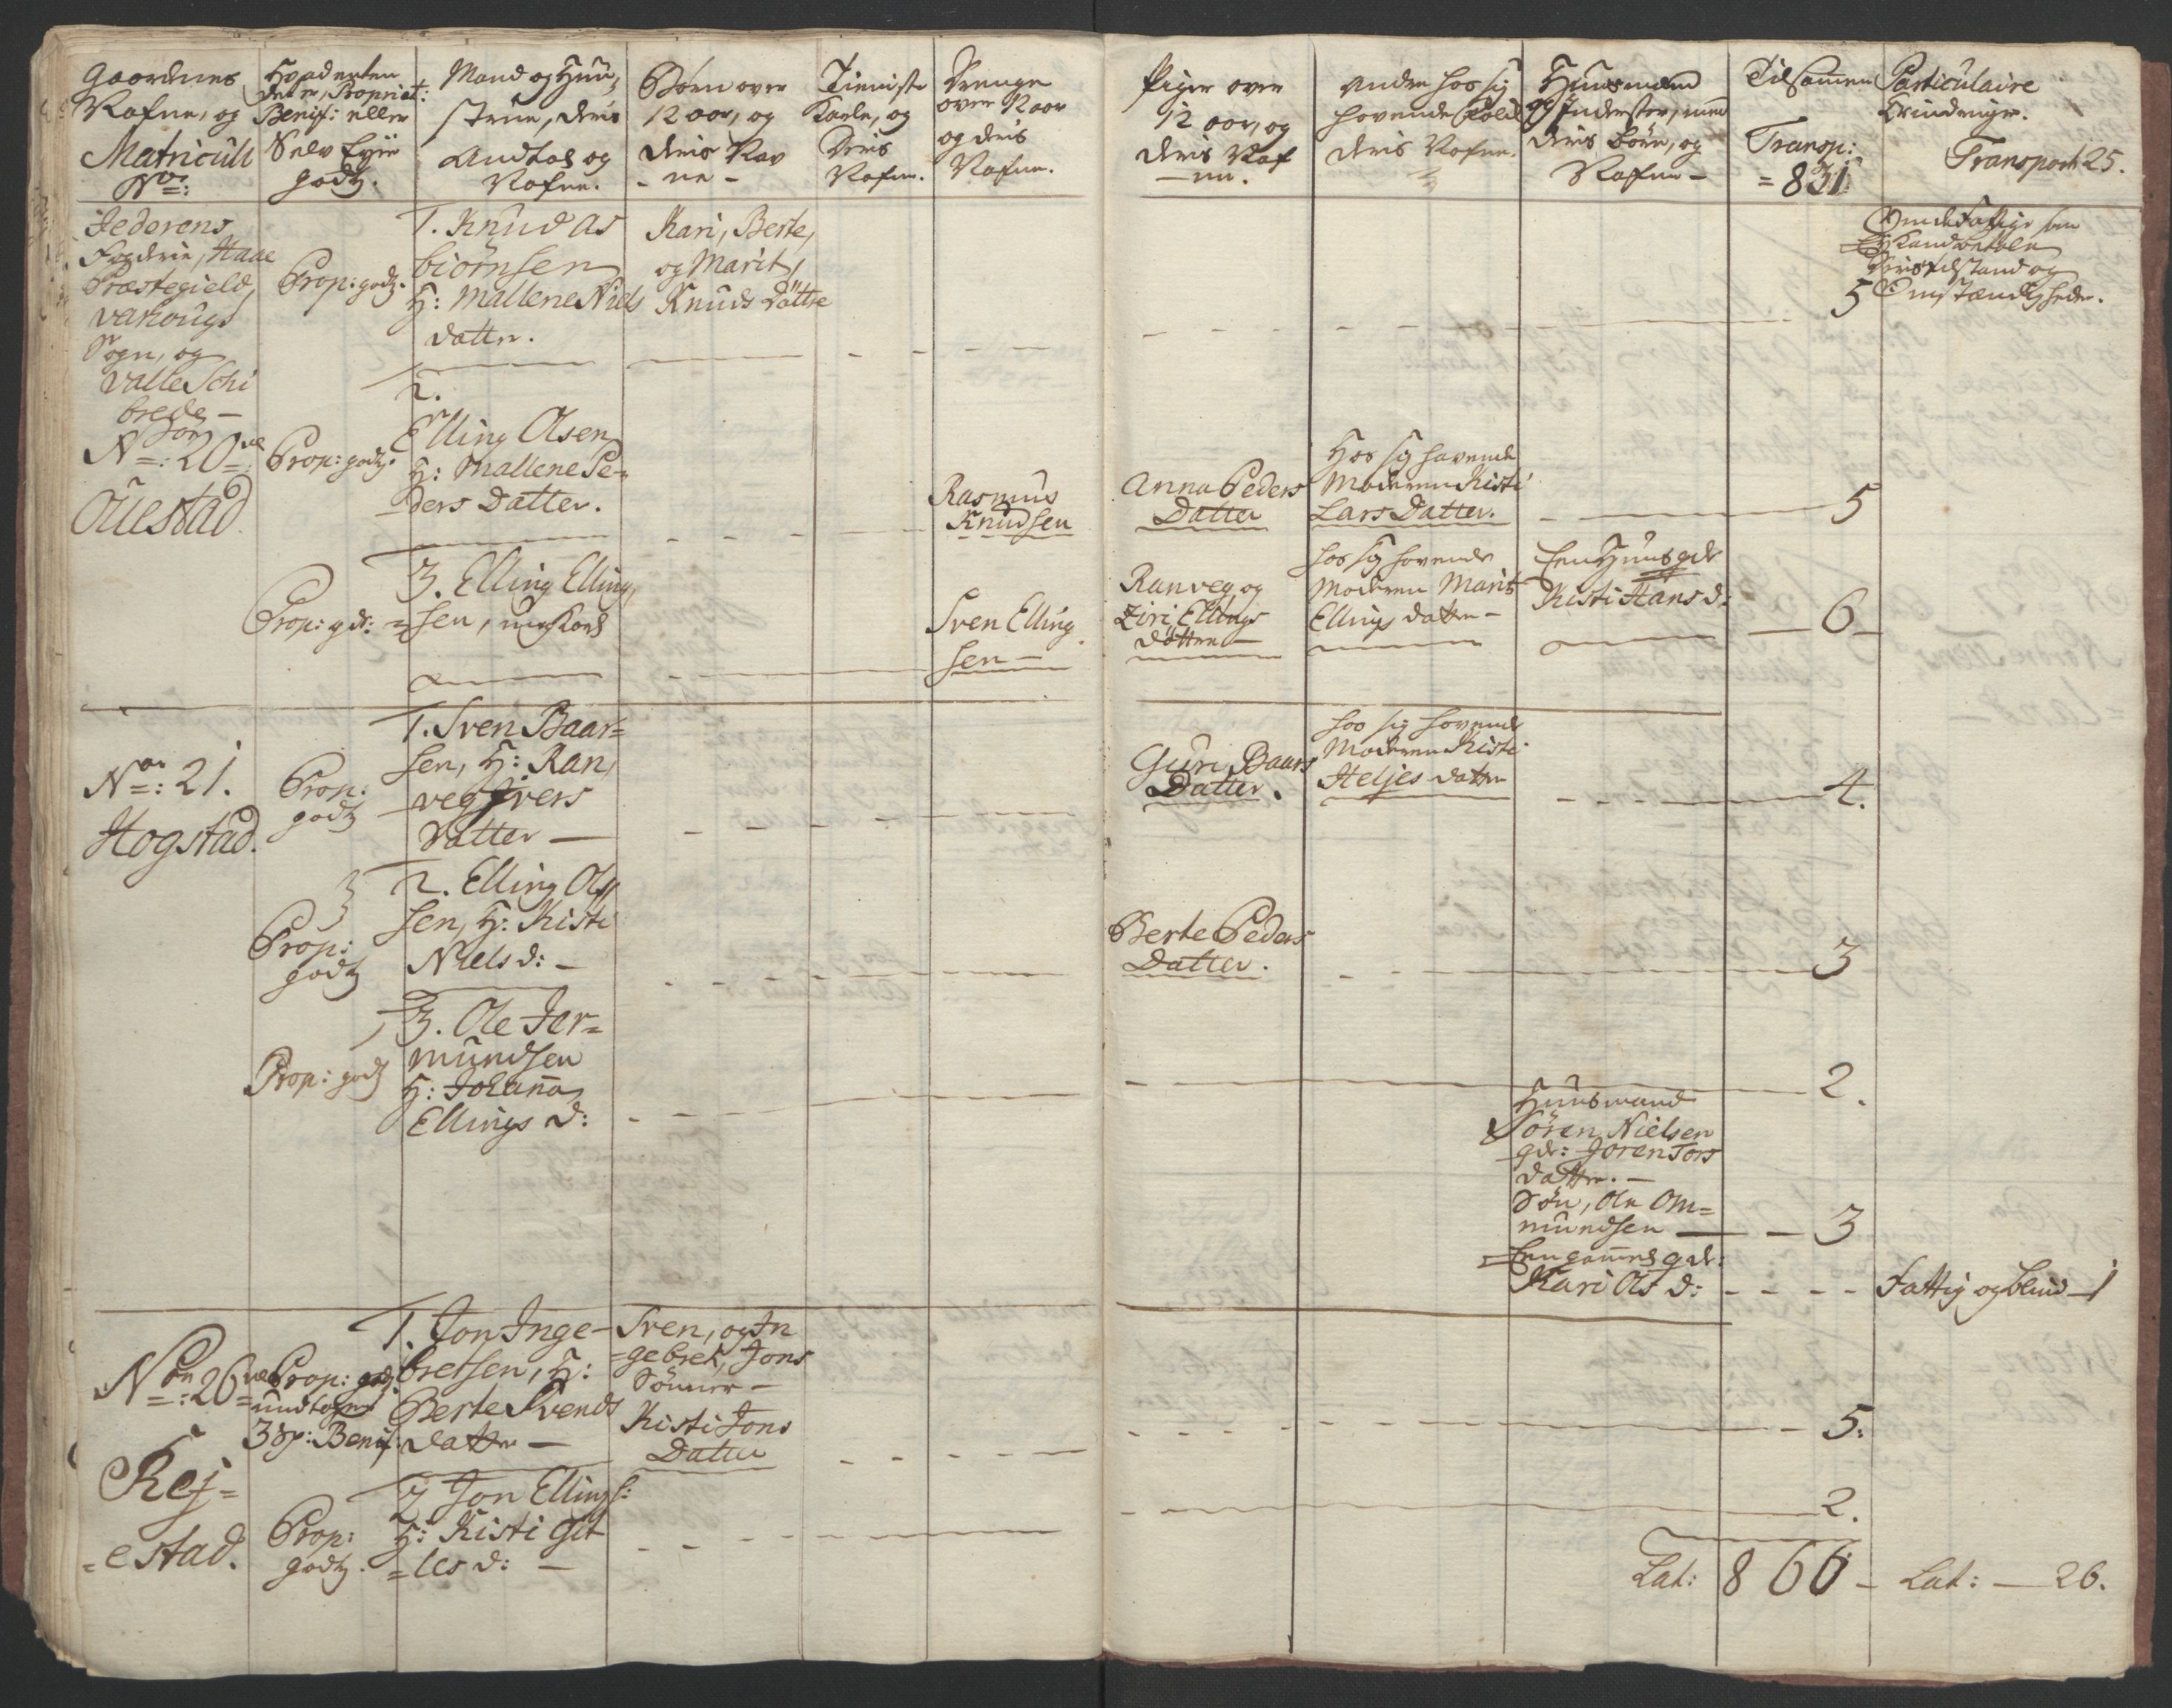 Gaordenes
Nafne, og
Matricull
No:
Hvad enten
det er Propriet:
Benif: eller
Selv Eyer
godz.
Mand og Huu,
strue, deris
Andtal og
Nafne.
Børn over
12 aar, og
deris Nav
- ne -
Tieniste
Karle, og
Deris
Nafne.
Drenge
over 12 aar
og deris
Nafne.
Piger over
12 aar, og
deris Naf
- ne.
Anden hos sig
havende Folck
deris Nafne.
Huusmænd
og Inderster, med
deris børn, og
Nafne -
Tilsamen
Transp:
= 831
Particulaire
Erindringer.
Transport 25.
Jederens
Fogderie, Haae
Præstegield,
Varhougs
Sogn, og
Valle Schi
brede -
No: 20de
Öuestad
Prop: godz.
1. Knud As
biörnsen
H: Mallene Niels
datter.
Kari, Berte,
og Marit,
Knuds Döttre
5
Ey Kand betale
Deris tilstand og
Omstændigheder.
Prop: godz.
2.
Elling Olsen
H: Mallene Pe-
ders Datter.
Rasmus
Knudsen
Anna Peders
Datter
Hos sig havende
Moderen Kisti
Lars Datter.
5
Prop: gds:
3. Elling Elling,
= sen, ungkarl
Sven Elling
sen -
Ranveg, og
Ziri, Ellings
döttere -
hos sig havende
Moderen Marit
Ellings datter -
Een Huusqde
Kisti Hans d:
6
No: 21.
Hogstad.
Prop:
godz
1. Sven Baar=
sen, H: Ran,
veg Ivers
Datter -
Guri Baars
Datter.
hos sig havende
Moderen Kisti
Heljes datter
4.
Prop:
godz
2. Elling Ols
sen, H: Kisti
Niels d: -
Berte Peders
Datter.
3
Prop: godz
3. Ole Jer=
mundsen
H: Johanna
Ellings d:
2.
Huusmand
Sören Nielsen
qde: Joren Tors
datter. -
Søn, Ole Om=
mundsen -
3
Een gammel qde:
Kari Ols d:
Fattig og blind - 1
No: 26de
Rej=
=estad.
Prop: godz.
undtagen
3 Sp: Benif:
1. Jon Inge-
bretsen, H:
Berte Svends
datter -
Sven, og In
=gebret, Jons
Sönner -
Kisti Jons
Datter
5:
Prop:
godz.
2 Jon Ellings:
H: Kisti Git
=les d: -
2.
Lat: 866 - Lat: - 26.